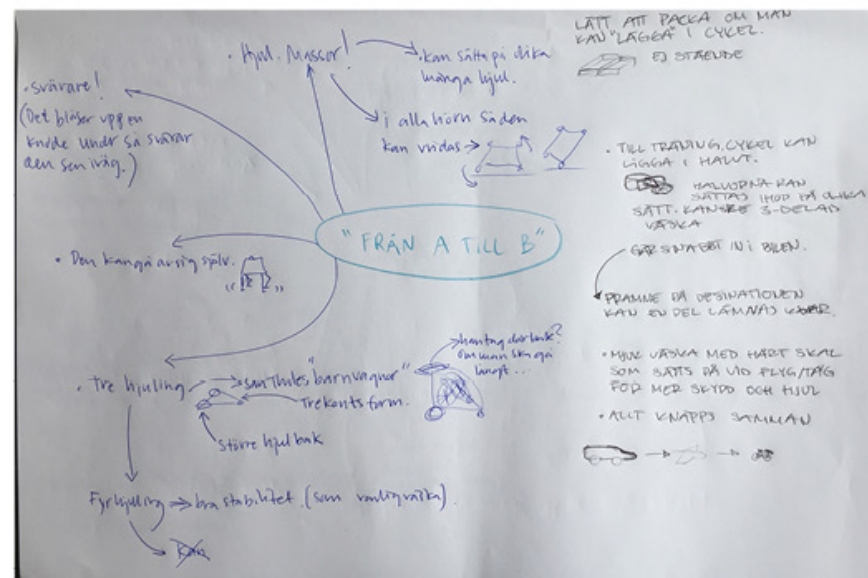 "FRÅN A TILL B"
• Hjul. Massor!
• kan sätta på olika
många hjul.
• i alla hörn så den
kan vridas →
• svävare!
(Det blåser upp en
kudde under så svävar
den sen iväg.)
• Den kan gå av sig själv.
• Tre hjuling
→ som Thules "barnvagnar"
Trekants form.
större hjul bak
handtag där bak?
om man ska gå
långt...
Fyrhjuling → bra stabilitet. (som vanlig väska)
LÄTT ATT PACKA OM MAN
KAN "LÄGGA" I CYKEL.
EJ STÅENDE
• TILL TRÄNING, CYKEL KAN
LIGGA I HALVT.
HALVORNA KAN
SÄTTAS IHOP PÅ OLIKA
SÄTT. KANSKE 3-DELAD
VÄSKA
GÅR SNABBT IN I BILEN.
FRAMME PÅ DESTINATIONEN
KAN EN DEL LÄMNAS KVAR.
• MJUK VÄSKA MED HÅRT SKAL
SOM SÄTTS PÅ VID FLYG/TÅG
FÖR MER SKYDD OCH HJUL
• ALLT KNÄPPS SAMMAN